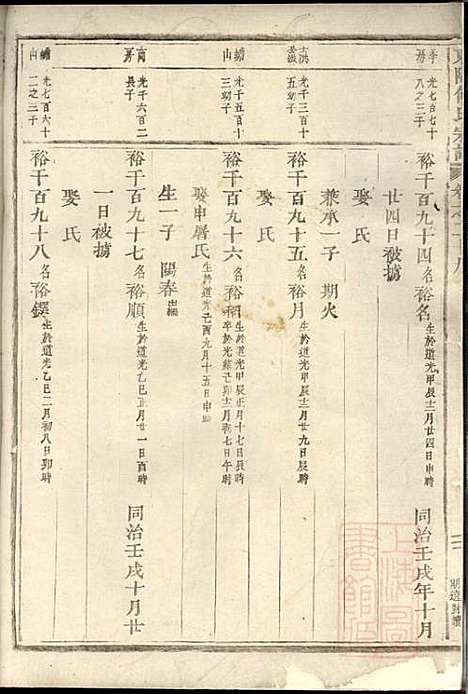 李房
光七百七十八之三子
裕千百九十四 名裕名 生於道光甲辰十二月廿四日申時 同治壬戌年十月
廿四日被擄
娶氏
兼承一子 期火
光千三百五朔子
裕千百九十五 名裕月 生於道光甲辰十二月廿九日辰時
娶氏
蟠山
光千五百三朔子
裕千百九十六 名裕相 生於道光甲辰正月十七日辰時
娶申屠氏 生於道光己酉九月十五日申時
生一子 陽春 出繼
南房
光千六百二長子
裕千百九十七 名裕順 生於道光乙巳正月廿一日酉時 同治壬戌十月廿
一日被擄
娶氏
蟠山
光七百六十二之三子
裕千百九十八 名裕鐸 生於道光乙巳二月初八日卯時
上海圖書館